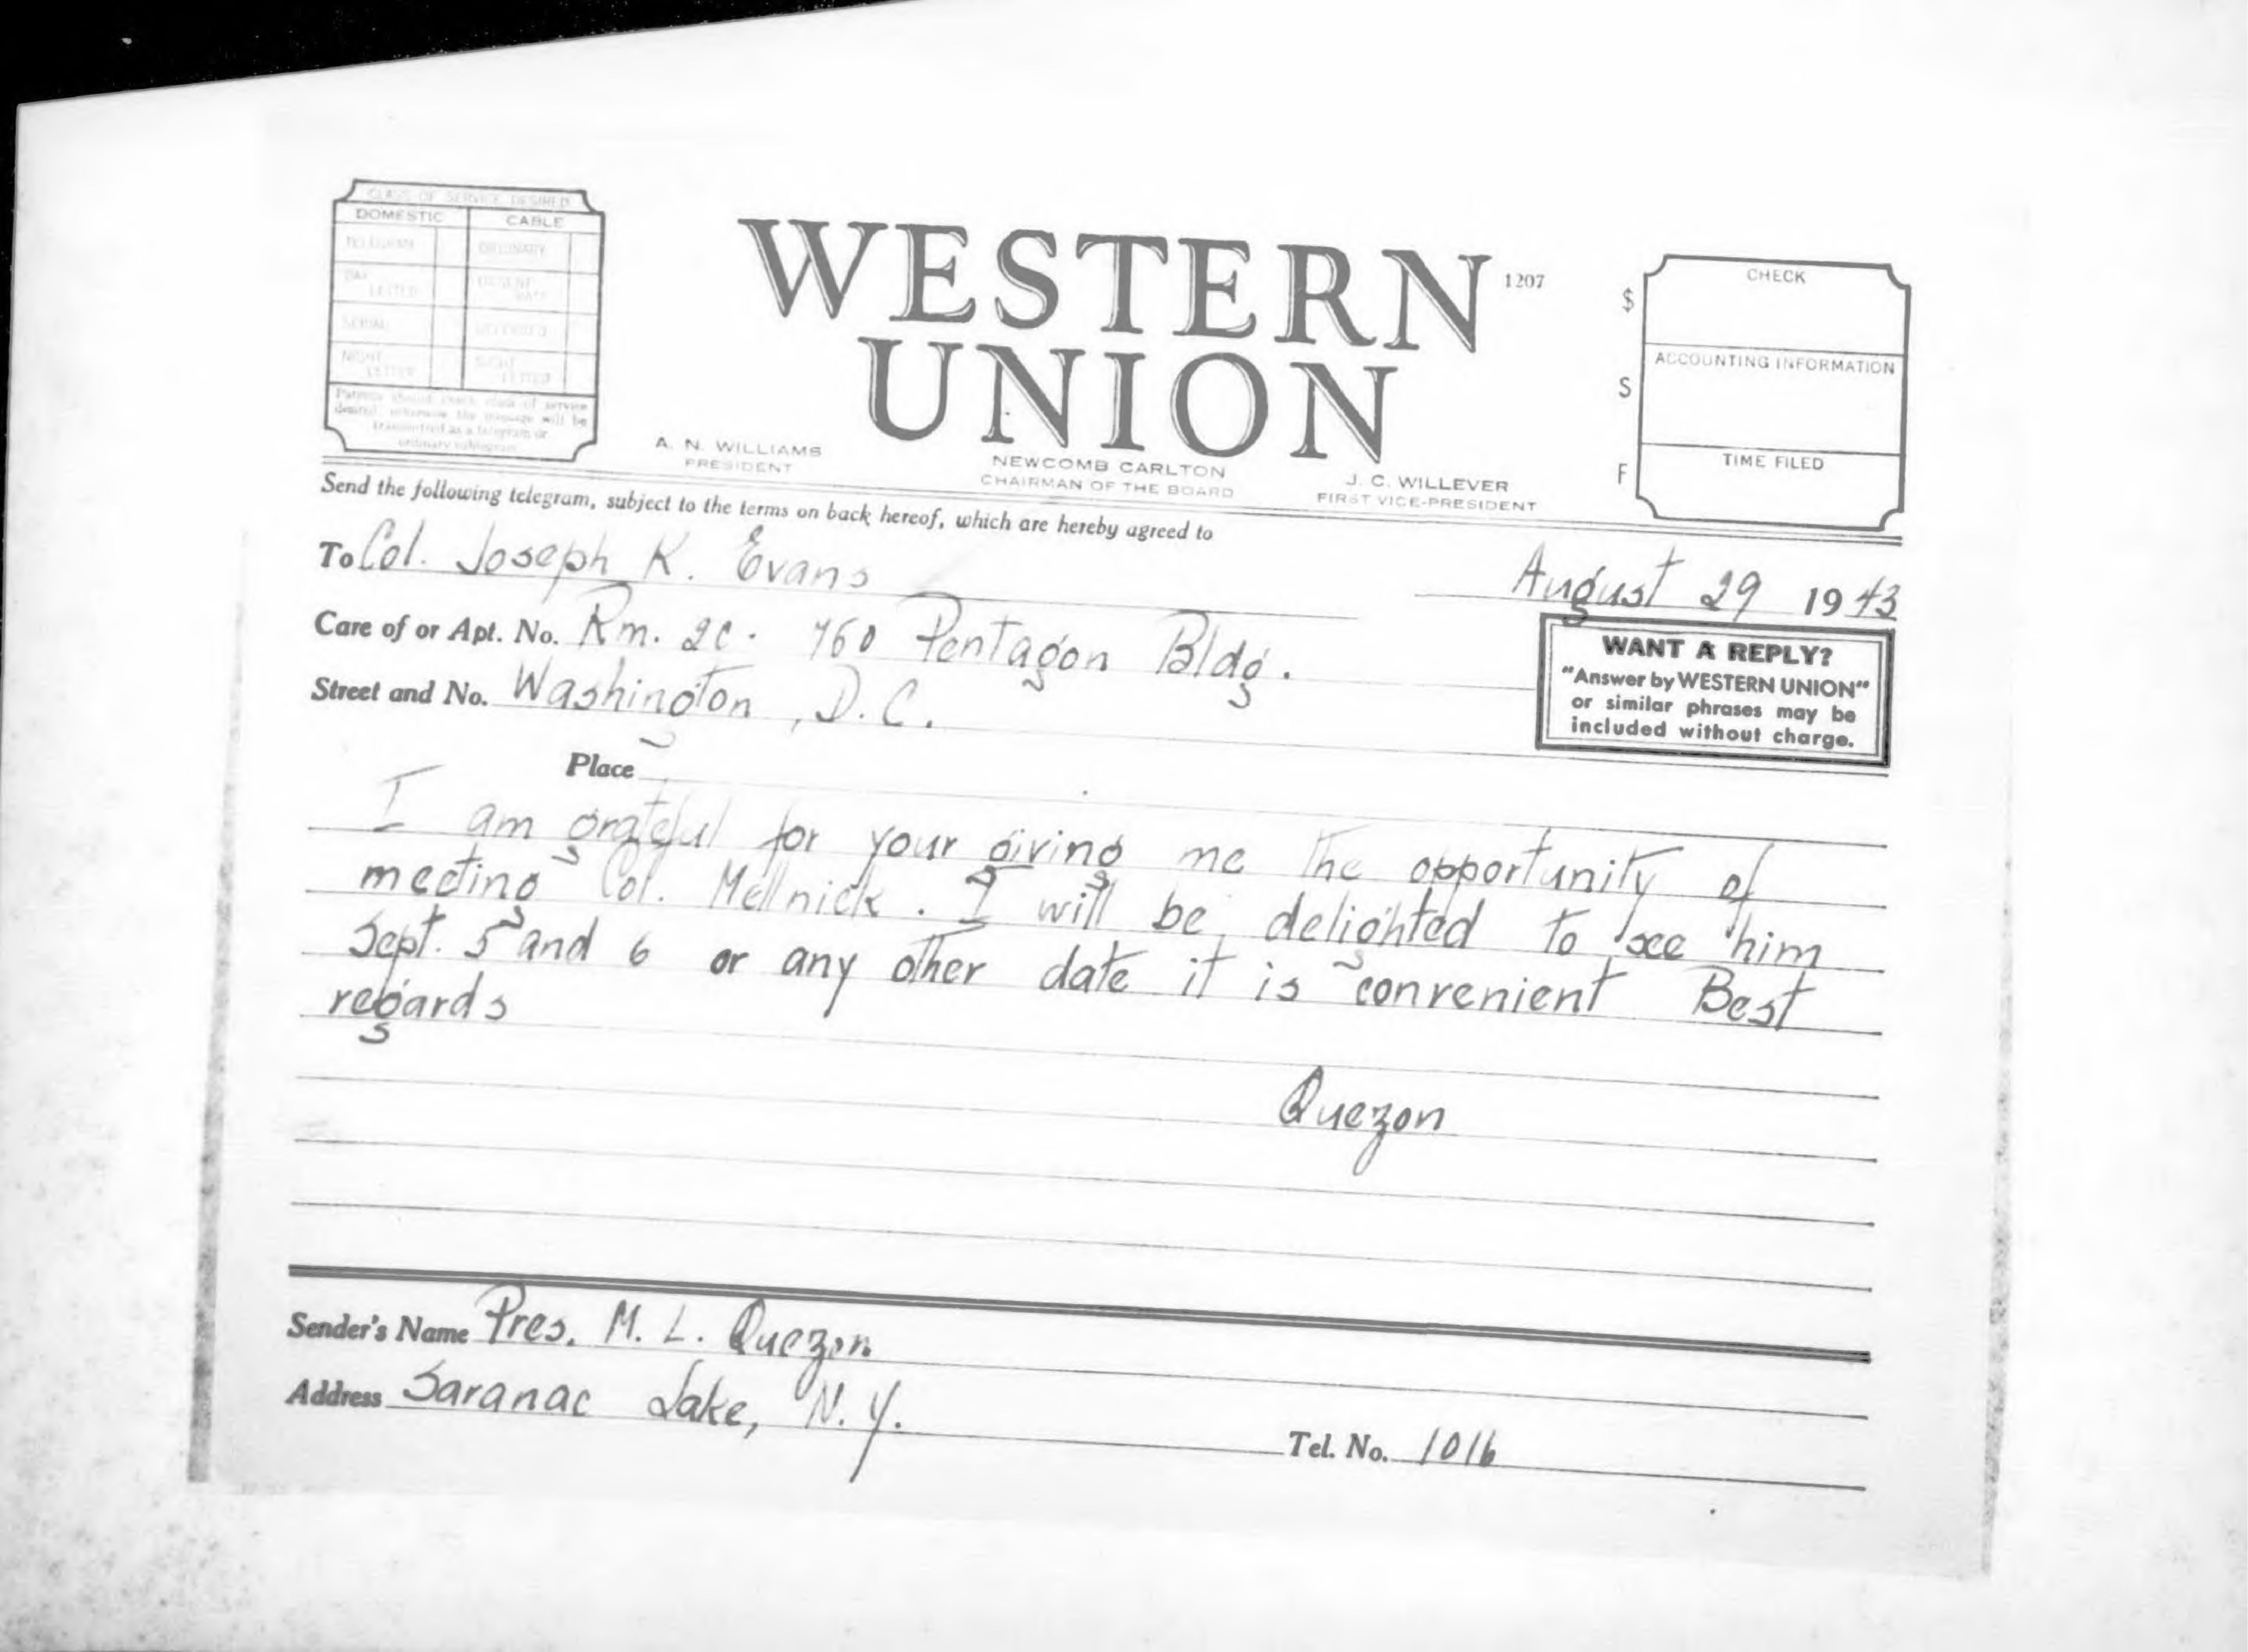 CLASS OF SERVICE DESIRED
DOMESTIC CABLE
TELEGRAM ORDINARY
DAY LETTER URGENT RATE
SERIAL DEFERRED
NIGHT LETTER NIGHT LETTER
Patrons should check class of service
desired; otherwise the message will be
transmitted as a telegram or
ordinary cablegram.
WESTERN
UNION
1207
A. N. WILLIAMS
PRESIDENT
NEWCOMB CARLTON
CHAIRMAN OF THE BOARD
J. C. WILLEVER
FIRST VICE-PRESIDENT
$ CHECK
S ACCOUNTING INFORMATION
F TIME FILED
Send the following telegram, subject to the terms on back hereof, which are hereby agreed to
To Col. Joseph K. Evans
August 29 1943
Care of or Apt. No. Rm. 2C. 760 Pentagon Bldg.
Street and No. Washington, D.C.
WANT A REPLY?
"Answer by WESTERN UNION"
or similar phrases may be
included without charge.
Place
I am grateful for your giving me the opportunity of
meeting Col. Mellnick. I will be delighted to see him
Sept. 5 and 6 or any other date it is convenient Best
regards
Quezon
Sender's Name Pres. M. L. Quezon
Address Saranac Lake, N.Y.
Tel. No. 1016